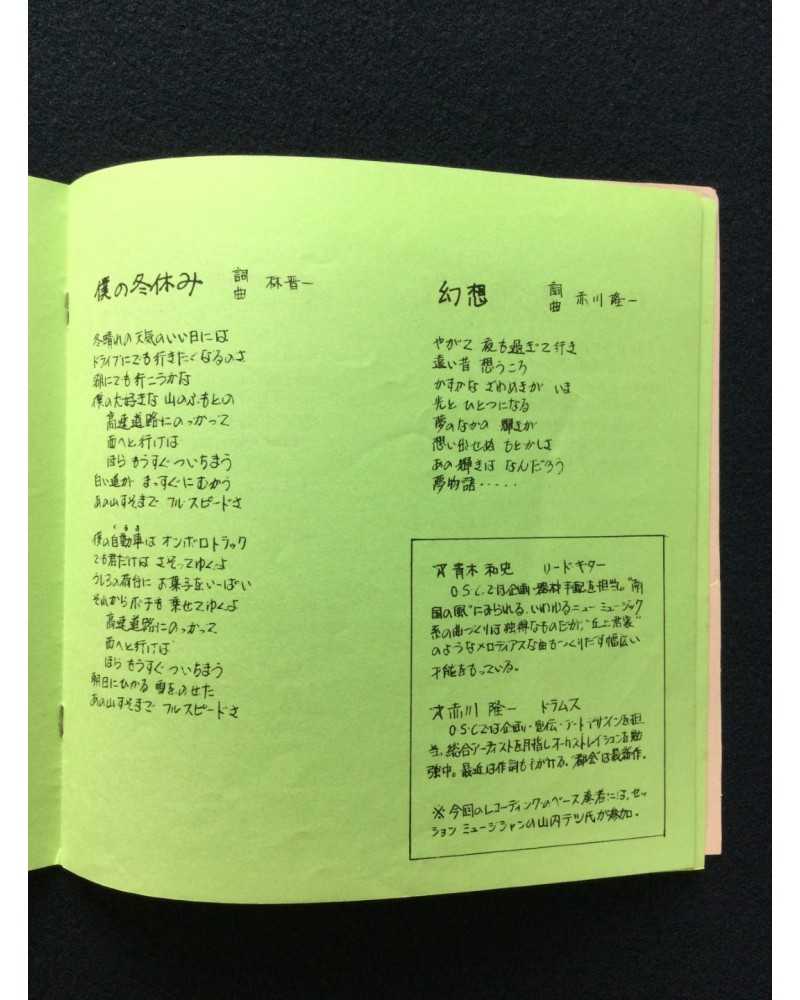 僕の冬休み 詞曲 林晋一
冬晴れの天気のいい日には
ドライブにでも行きたくなるのさ
湖にでも行こうかな
僕の大好きな 山のふもとの
高速道路にのっかって
西へと行けば
ほら もうすぐ ついちまう
白い道が まっすぐにむかう
あの山すそまで フル・スピードさ
僕の自動車は オンボロトラック
くるま
でも君だけは さそってゆくよ
うしろの荷台に お菓子をいーぱい
それから ポチも 乗せてゆくよ
高速道路にのっかって
西へと行けば
ほら もうすぐ ついちまう
朝日にひかる 雪をのせた
あの山すそまで フルスピードさ
幻想 詞曲 赤川隆一
やがて 夜も過ぎて行き
遠い昔 想うころ
かすかな ざわめきが いま
光と ひとつになる
夢のなかの 輝きが
想い出せぬ もどかしさ
あの輝きは なんだろう
夢物語・・・・・
☆青木 和史 リードギター
O.S.C.では企画・器材手配を担当。“南
国の風”にみられる、いわゆるニューミュージック
系の曲づくりは独得なものだが、“丘上
のようなメロディアスな曲もつくりだす幅広い
才能をもっている。
☆赤川 隆一 ドラムス
O.S.C.では企画・宣伝・アートデザインを担
当。総合アーティストを目指しオーケストレイションを勉
強中。最近は作詞も手がける。“都会”は最新作。
※今回のレコーディングのベース奏者には、セッ
ション ミュージシャンの山内テツ氏が参加。